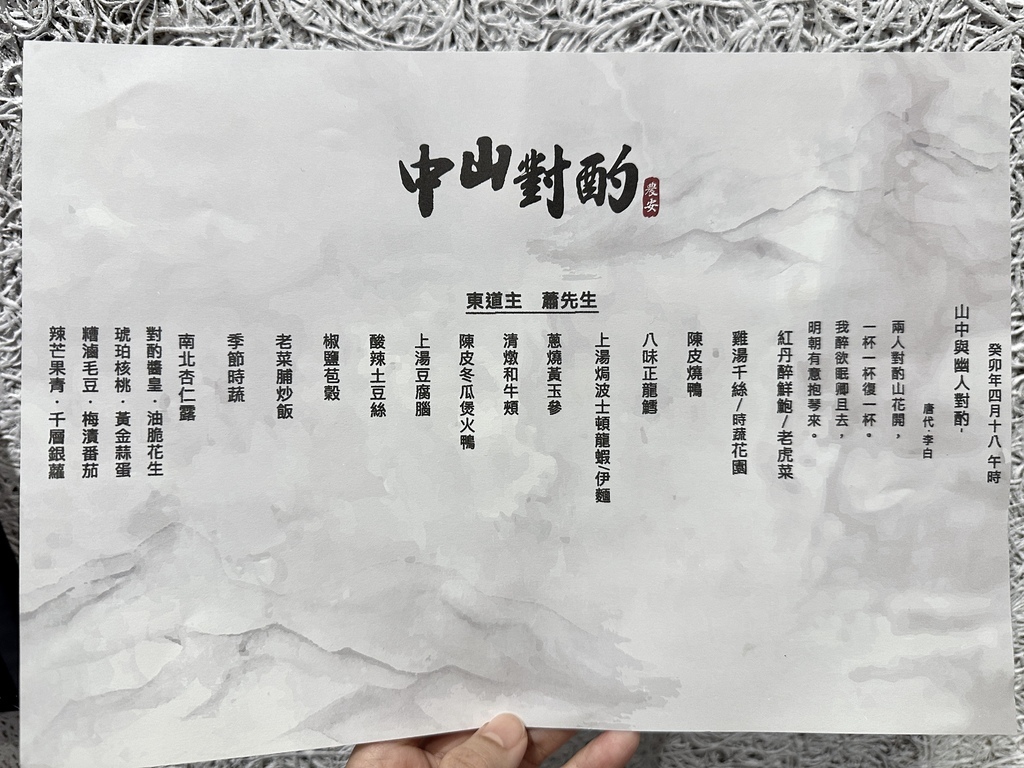 中山對酌
農安
東道主　蕭先生
癸卯年四月十八 午時
山中與幽人對酌-
唐代·李白
兩人對酌山花開，
一杯一杯復一杯。
我醉欲眠卿且去，
明朝有意抱琴來。
紅丹醉鮮鮑/老虎菜
雞湯千絲/時蔬花園
陳皮燒鴨
八味正龍鱈
上湯焗波士頓龍蝦/伊麵
蔥燒黃玉參
清燉和牛頰
陳皮冬瓜煲火鴨
上湯豆腐腦
酸辣土豆絲
椒鹽苞穀
老菜脯炒飯
季節時蔬
南北杏仁露
對酌醬皇．油脆花生
琥珀核桃．黃金蒜蛋
糟滷毛豆．梅漬番茄
辣芒果青．千層銀蘿